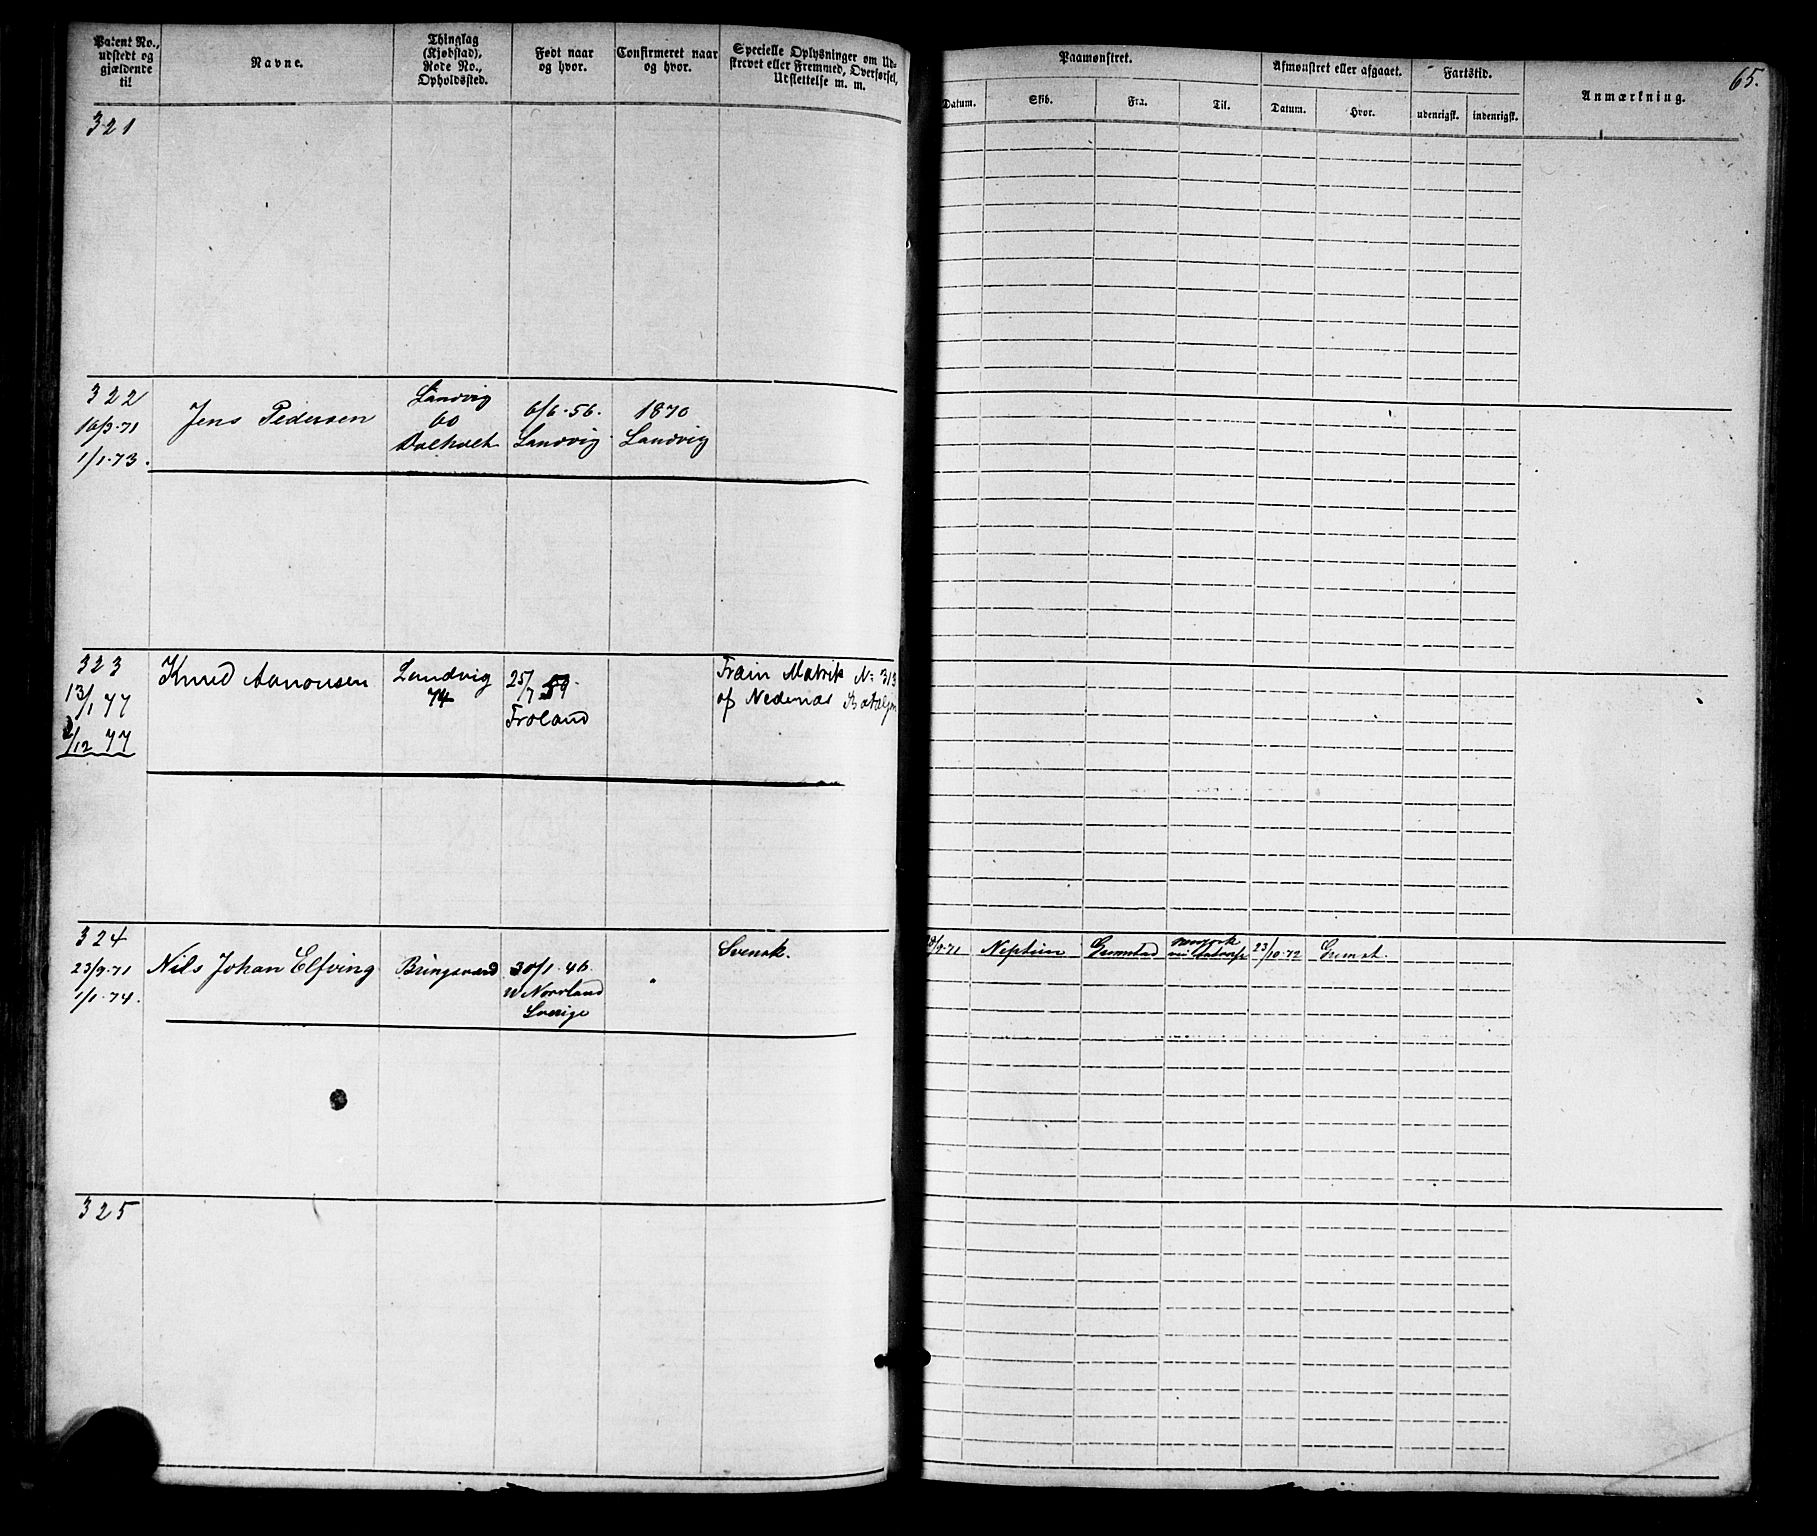 Patent No., udstedt og gjældende til
Navne.
Thinglag (Kjøbstad), Rode No., Opholdssted.
Født naar og hvor.
Confirmeret naar og hvor.
Specielle Oplysninger om Udskrevet eller Fremmed, Overførsel, Udslettelse m. m.
Paamønstret.
Datum.
Skib.
Fra.
Til.
Afmønstret eller afgaaet.
Datum.
Hvor.
Fartstid.
udenrigsk.
indenrigsk.
Anmærkning.
65.
321
322
16/9-71
1/1-73.
Jens Pedersen
Landvig
60
Dalholt
6/6-56.
Landvig
1870
Landvig
323
13/1 77
/12 77
Knud Aanonsen
Landvig
74
25/7 59
Froland
Train Matrik No 313
af Nedenæs Bataljon
324
23/9-71
1/1-74.
Nils Johan Elfving
Bringsværd
30/1-46.
W Norrland
Sverige
Svensk.
/9-71
Neptun
Grimstad
23/10-72
Grimst.
325